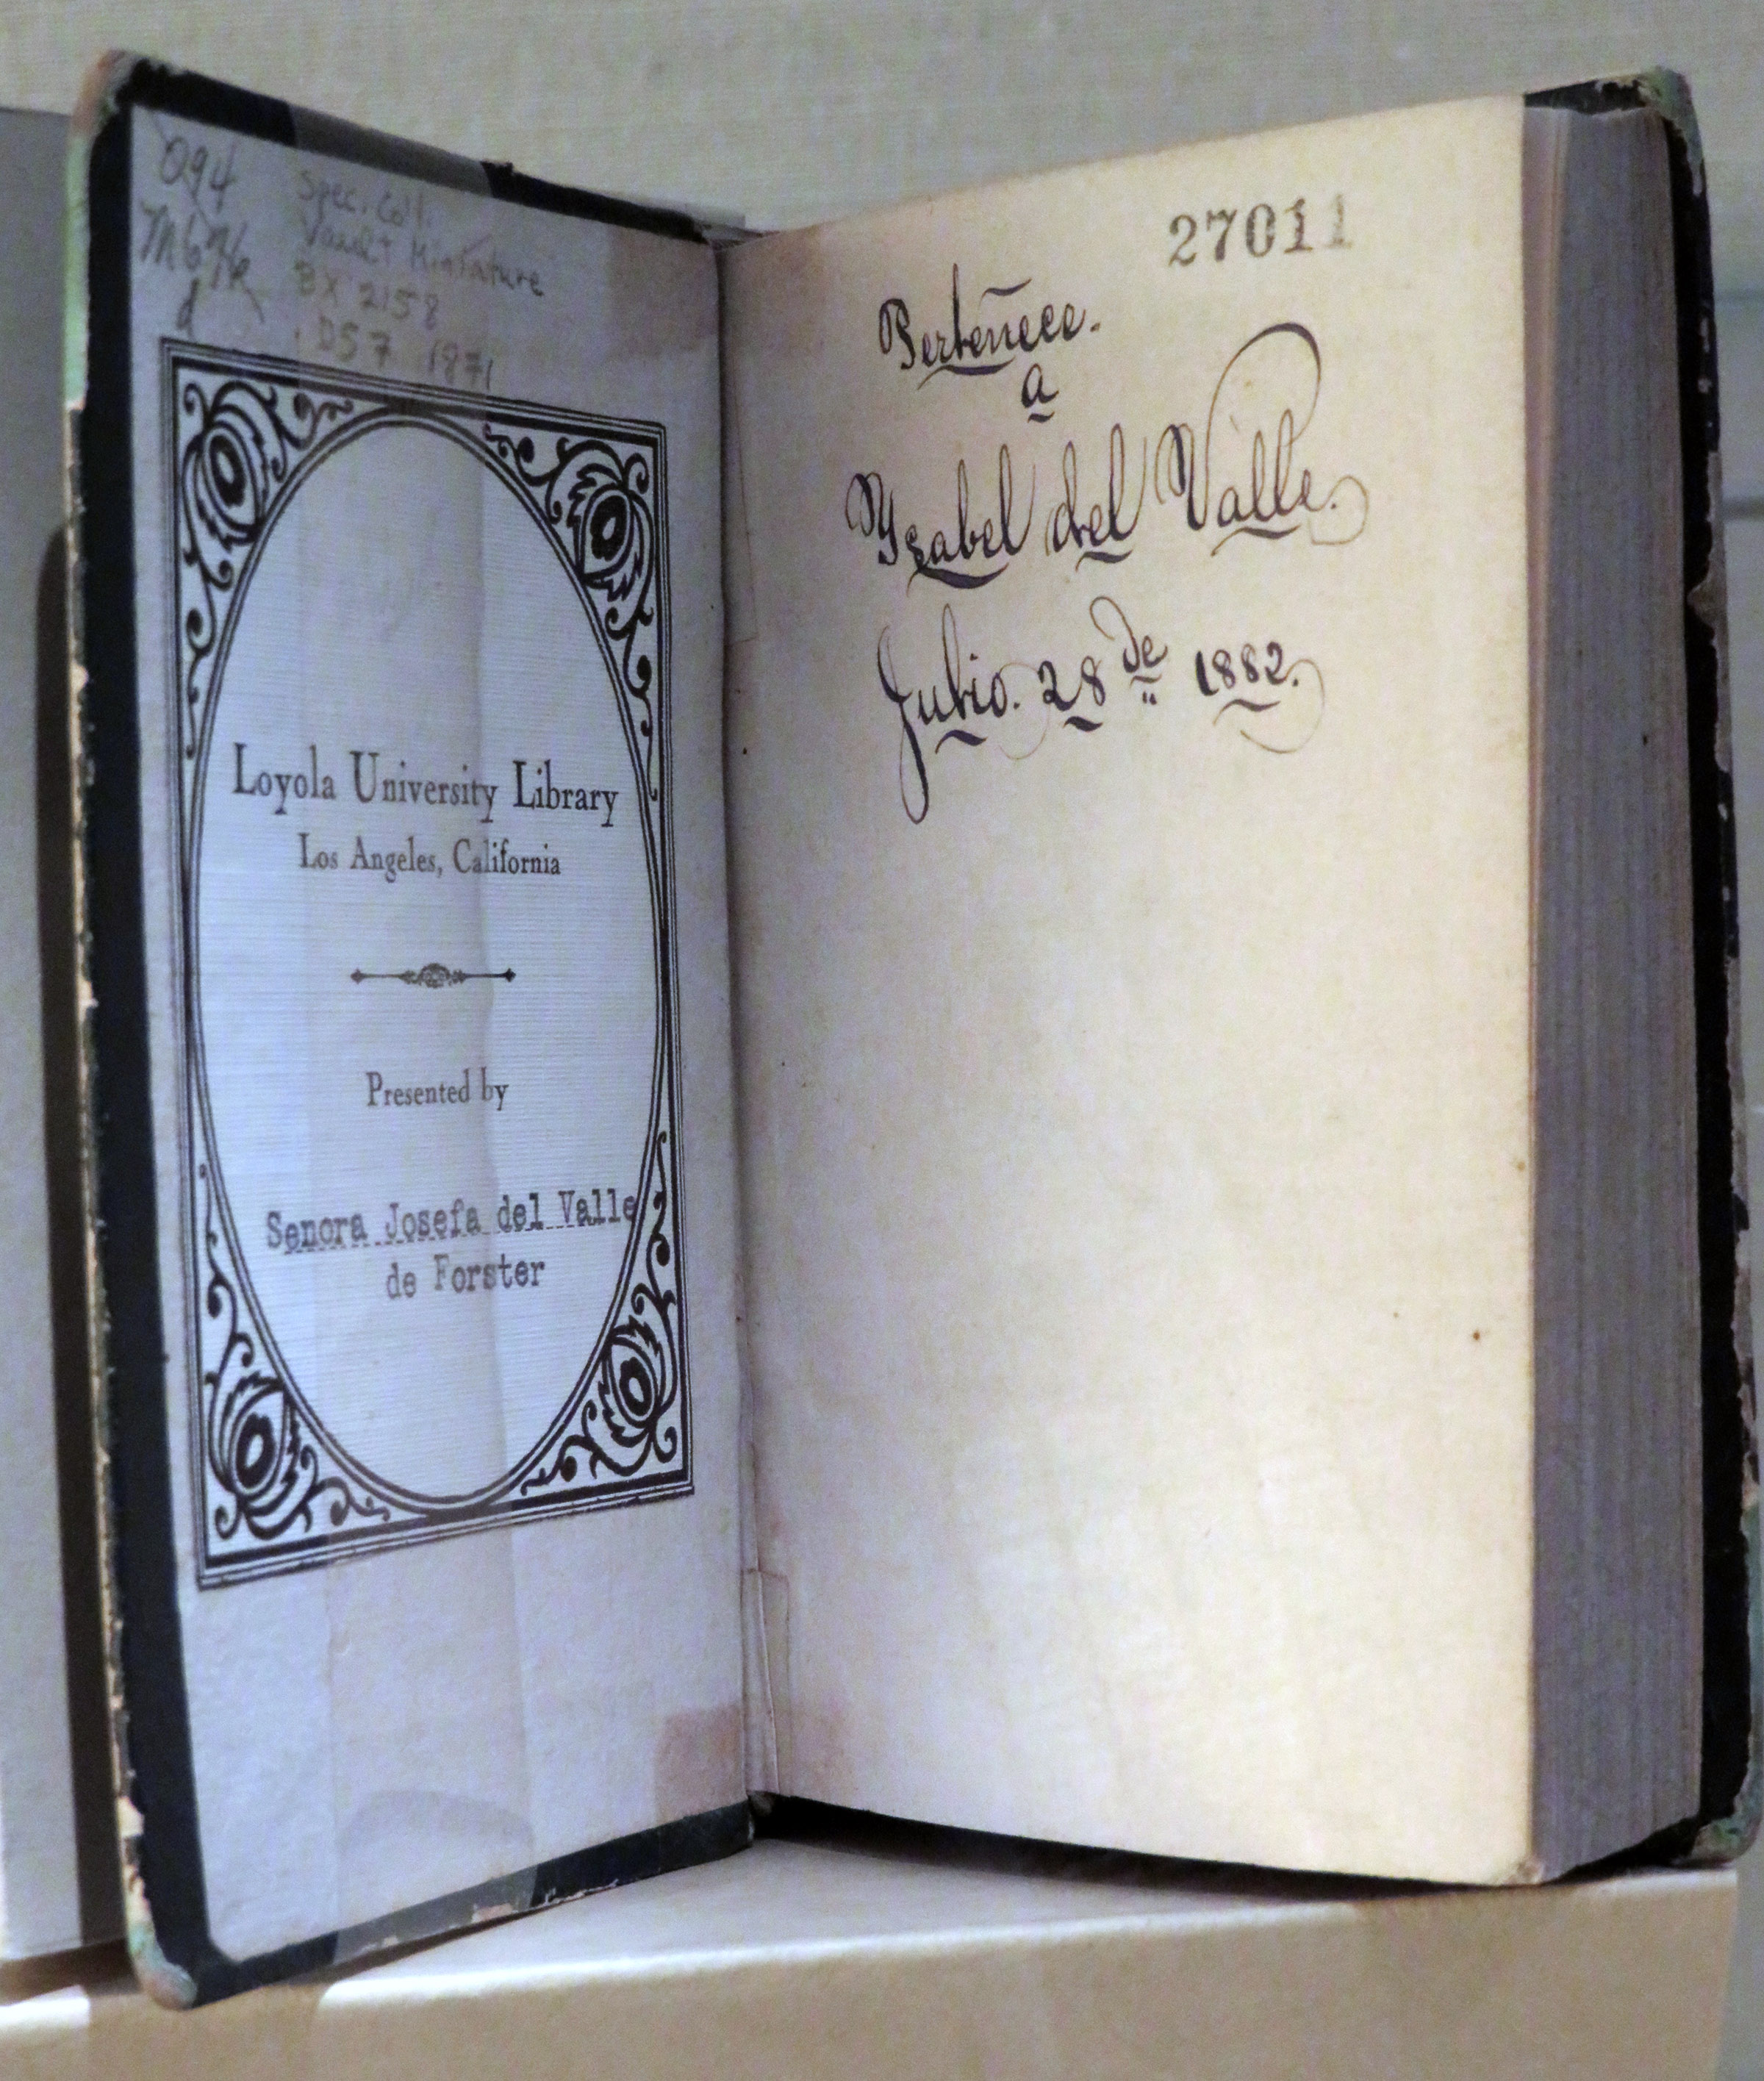 094
Spec. Coll.
Vault Miniature
BX 2158
.D57 1871
d
Loyola University Library
Los Angeles, California
Presented by
Senora Josefa del Valle
de Forster
27011
Perteñece.
a
Ysabel del Valle.
Julio. 28 de 1882.